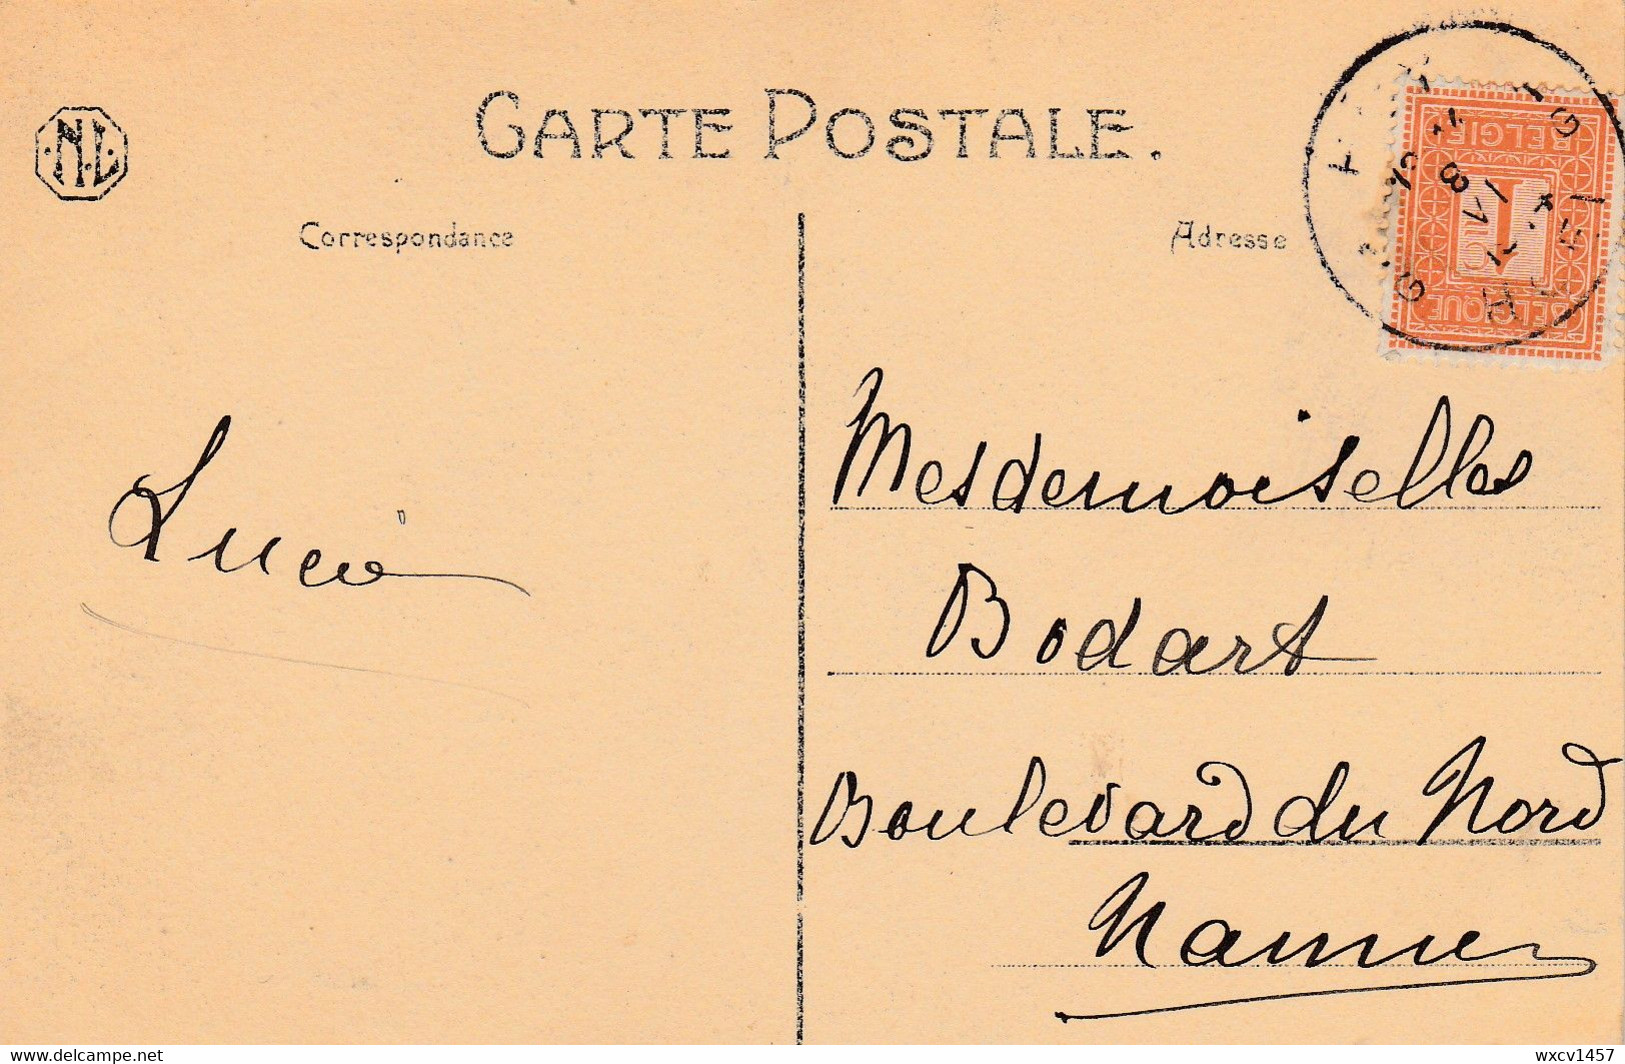 N.L.
CARTE POSTALE.
Correspondance
Adresse
BELGIË
1
BELGIQUE
Lucie
Mesdemoiselles
Bodart
Boulevard du Nord
Namur
www.delcampe.net
wxcv1457